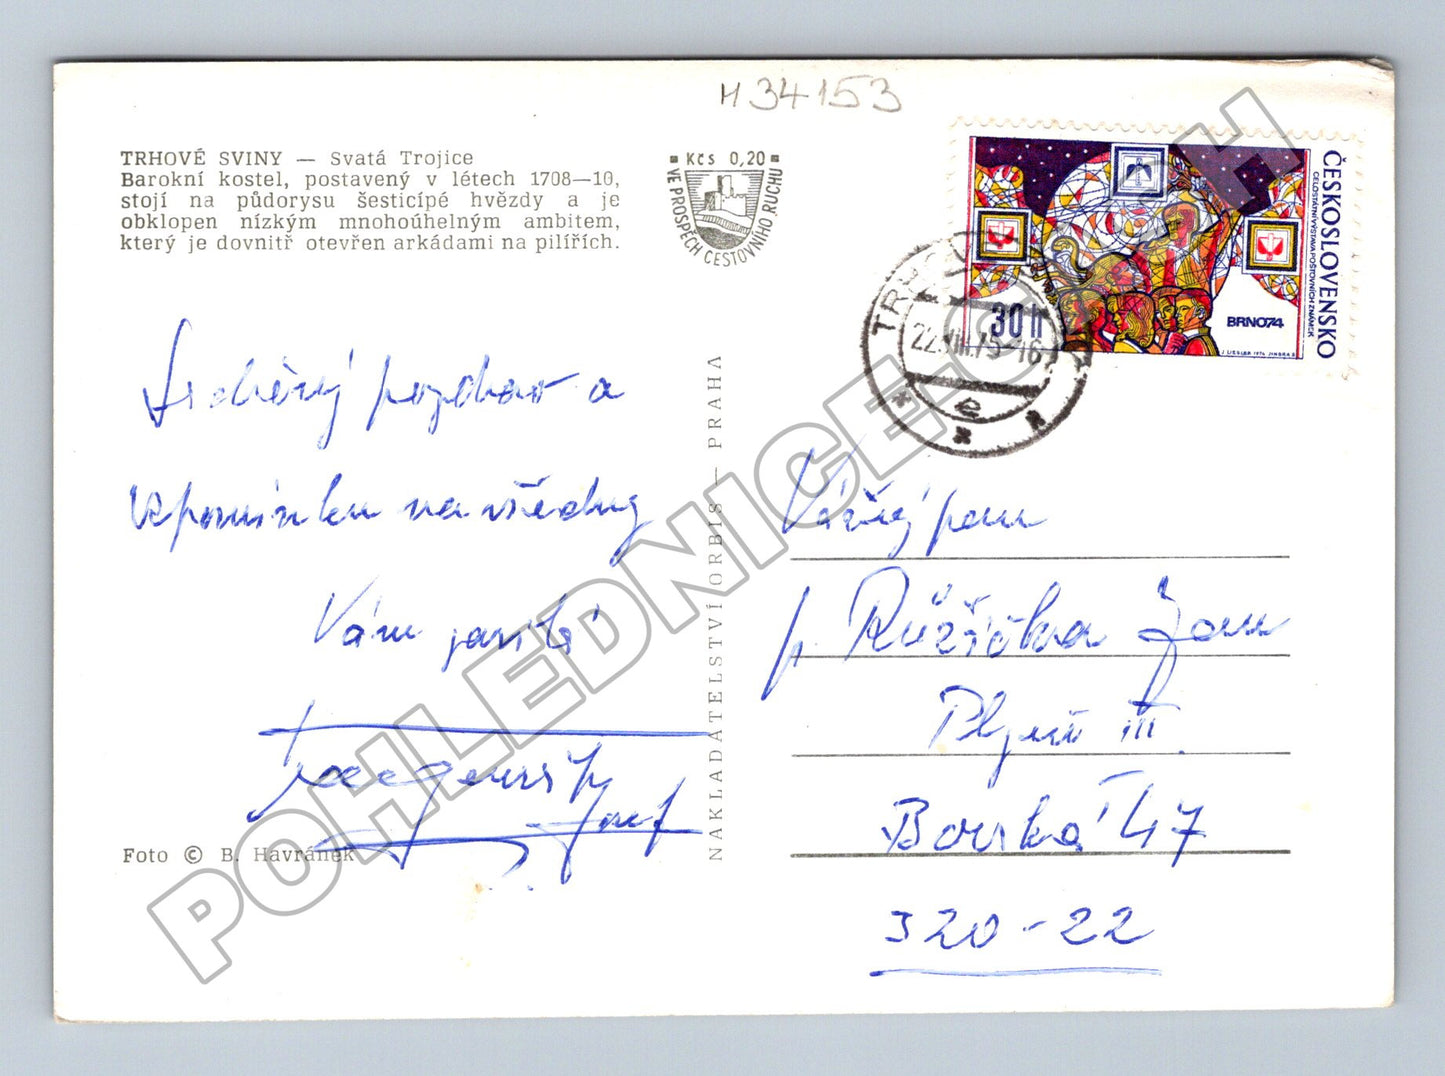 H34153
TRHOVÉ SVINY — Svatá Trojice
Barokní kostel, postavený v létech 1708—10,
stojí na půdorysu šesticípé hvězdy a je
obklopen nízkým mnohoúhelným ambitem,
který je dovnitř otevřen arkádami na pilířích.
Kčs 0,20
VE PROSPĚCH CESTOVNÍHO RUCHU
ČESKOSLOVENSKO
CELOSTÁTNÍ VÝSTAVA POŠTOVNÍCH ZNÁMEK
30 h
BRNO74
J. LIESLER 1974 JINDRA S.
22.VIII.75-16
e
Srdečný pozdrav a
vzpomínku na všedny
Vám
Josef
Foto © B. Havránek
NAKLADATELSTVÍ ORBIS — PRAHA
Vážený pan
p. Růžička Jan
Plzeň III.
Borská 47
320-22
POHLEDNICE.CH